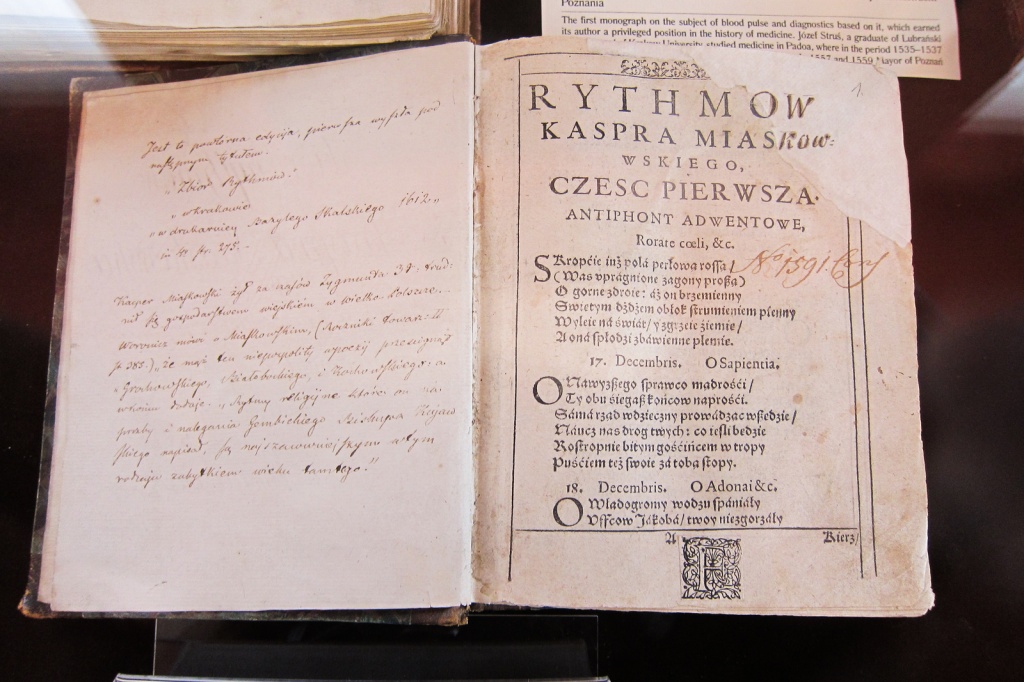 Poznania
The first monograph on the subject of blood pulse and diagnostics based on it, which earned
its author a privileged position in the history of medicine. Józef Struś, a graduate of Lubrański
University studied medicine in Padoa, where in the period 1535–1537
1557 and 1559 Mayor of Poznań
Jest to powtórna edycija, pierwsza wyszła pod
następnym tytułem.
"Zbiór Rythmów."
"w Krakowie
"w drukarniey Bazylego Skalskiego 1612."
in 4 str. 275.-
Kacper Miaskowski żył za czasów Zygmunta 3º. trud:
nił się gospodarstwem wiejskiém w Wielko-Polszcze.
Woronicz mówi o Miaskowskim, (Roczniki Towarz:
że mąż ten niepospolity
"Grochowskiego, Białobockiego, i Kochowskiego: a
w końcu dodaje. "Rytmy religijne które on na
prozby i nalegania Gembickiego Biskupa Kujaw
skiego napisał, są najszanowniejszym w tym
rodzaju zabytkiem wieku tamtego."
1.
RYTHMOW
KASPRA MIASKOW:
WSKIEGO,
CZESC PIERWSZA.
ANTIPHONY ADWENTOWE,
Rorate cœli, &c.
SKropćie iuż polá perłowa rossa/
(Was vprágnione zagony proßą)
O gorne zdroie: áż on brzemienny
Swiętym dżdżem obłok strumieniem plenny
Wyleie ná świát/ y zgrzeie źiemię/
A oná spłodźi zbáwienne plemię.
No 1591
17. Decembris. O Sapientia.
ONawyzßego sprawco mądrośći/
Ty obu śięgaß końcow náprośći.
Sámá rząd wdźięczny prowádząc wßędźie/
Náucz nas drog twych: co ieśli będźie
Rostropnie bitym gośćińcem w tropy
Puśćiem też swoie zá tobą stopy.
18. Decembris. O Adonai &c.
OWładogromy wodzu spániáły
Vffcow Jákobá/ twoy niezgorzáły
A Kierz/